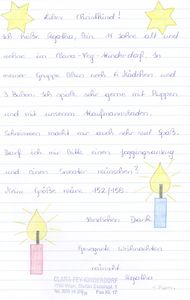 Liebes Christkind!
Ich heiße Agatha, bin 11 Jahre alt und
wohne im Clara-Fey-Kinderdorf. In
meiner Gruppe leben noch 6 Mädchen und
3 Buben. Ich spiele sehr gerne mit Puppen
und mit unserem Kaufmannsladen.
Schwimmen macht mir auch sehr viel Spaß.
Darf ich mir bitte einen Jogginganzug
und einen Sweater wünschen?
Meine Größe wäre 152/158.
Herzlichen Dank
Gesegnete Weihnachten
wünscht
Agatha
CLARA-FEY-KINDERDORF